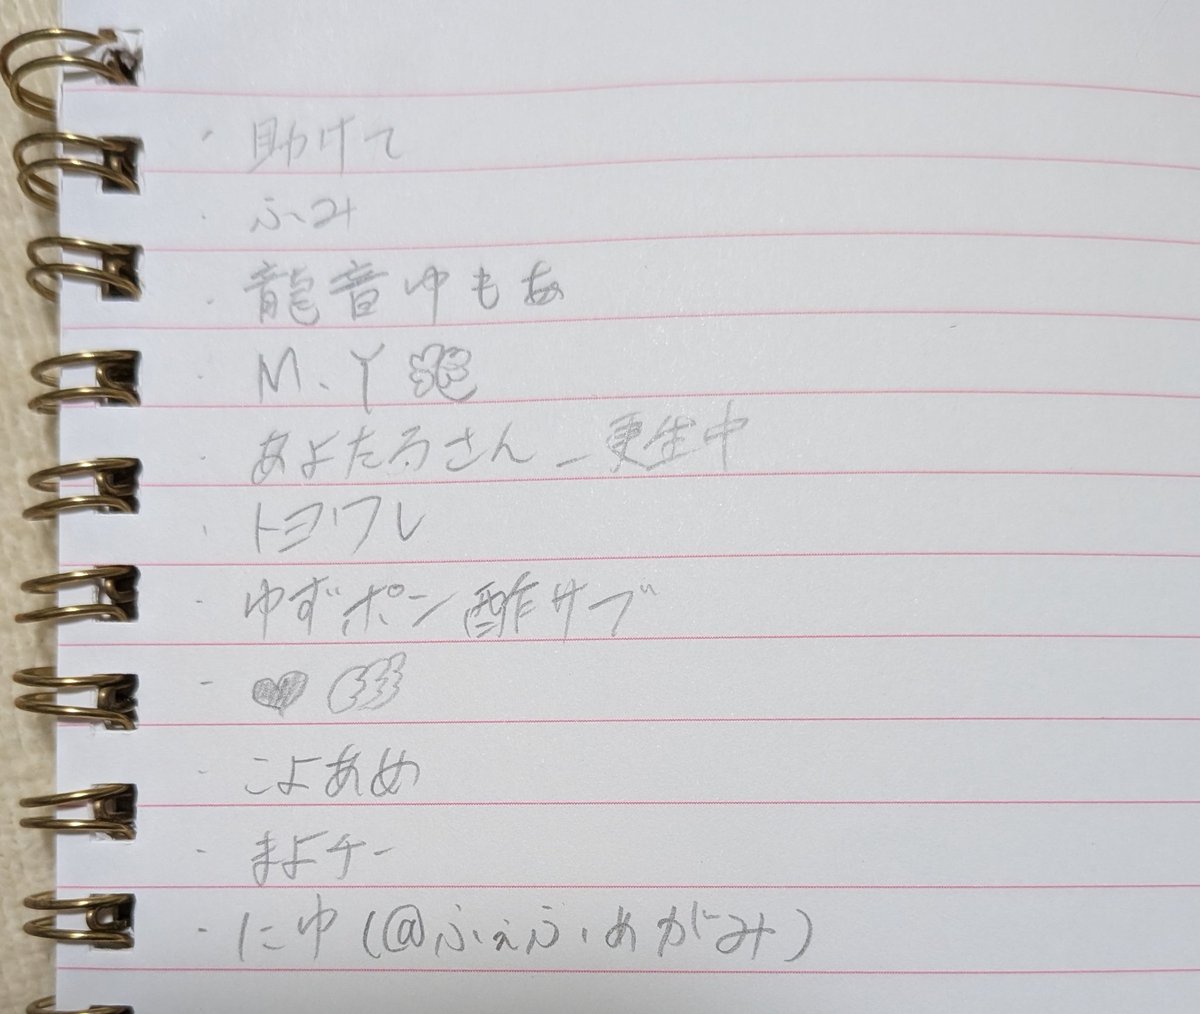 ・助けて
・ふみ
・龍音ゆもあ
・M.Y
・あよたろさん_更生中
・トヨワレ
・ゆずポン酢サブ
・こよあめ
・まよチー
・にゆ(@ふぇふ、めがみ)